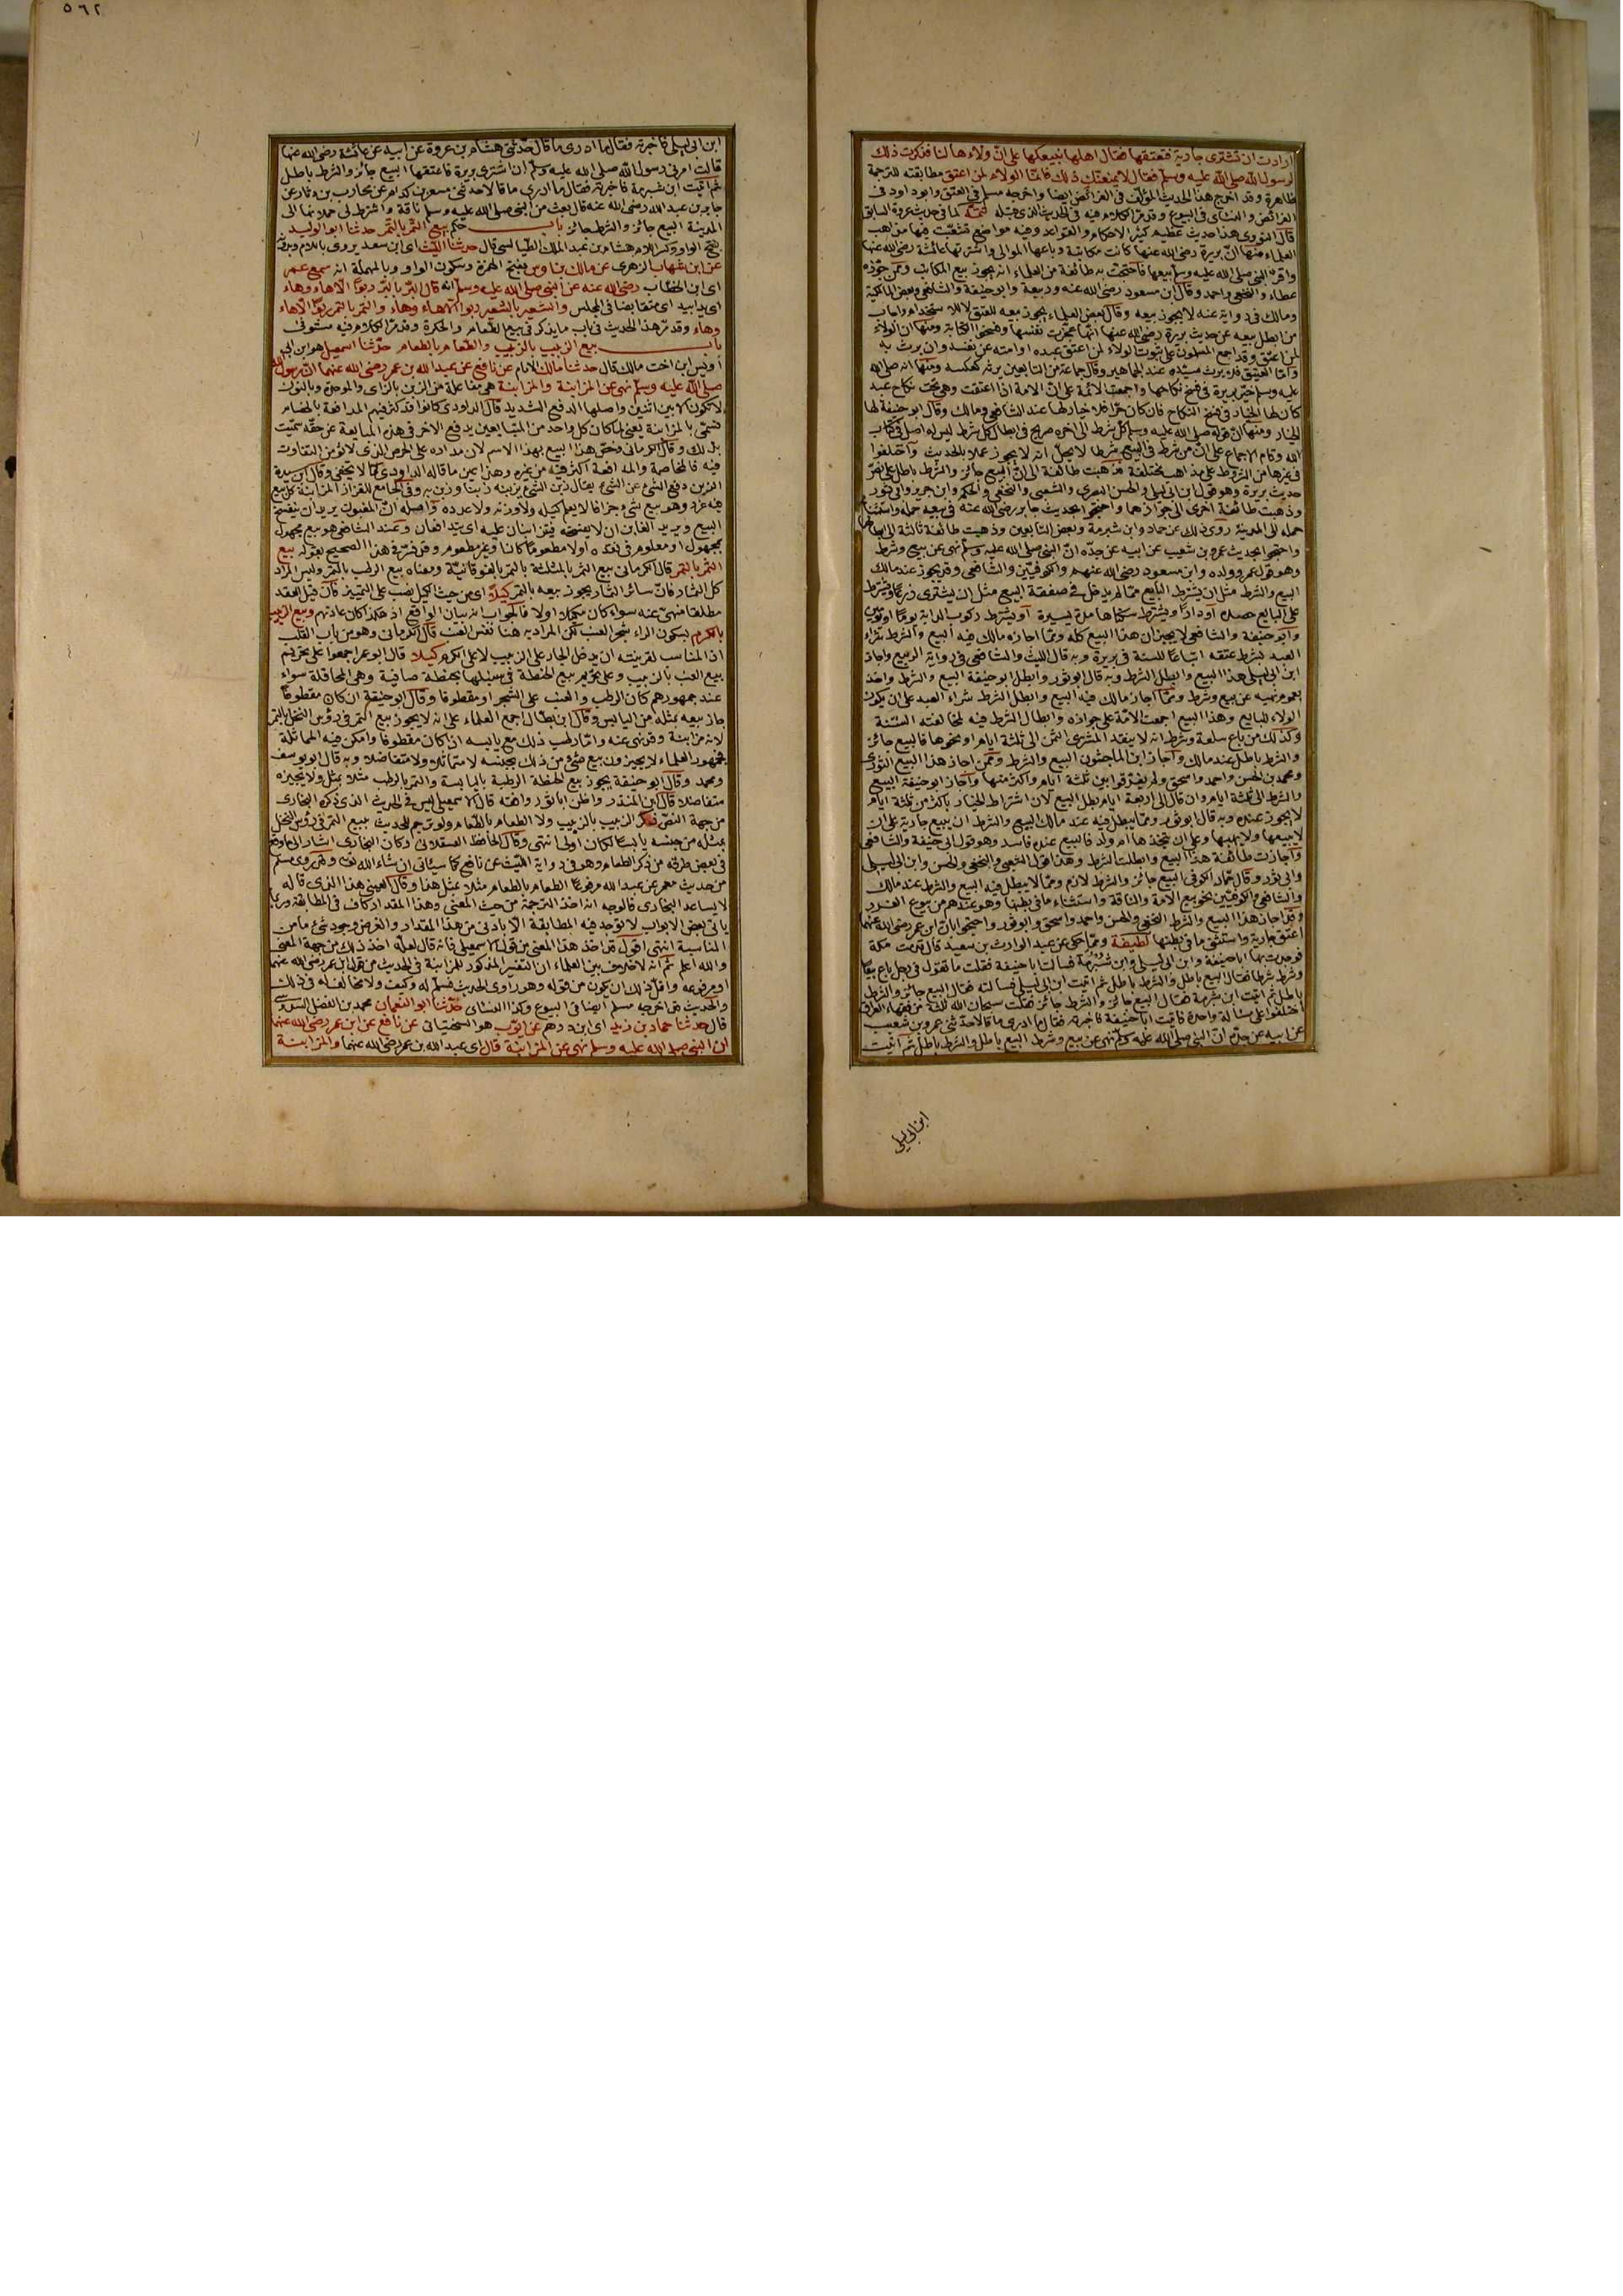 ارادت ان تشترى جارية فتعتقها فقال اهلها نبيعكها على انّ ولاءها لنا فذكرت ذلك
لرسول الله صلى الله عليه وسلم فقال لا يمنعك ذلك فانما الولاء لمن اعتق مطابقته للترجمة
ظاهرة وقد اخرج هذا الحديث المؤلف فى الفرائض ايضا واخرجه مسلم فى العتق وابو داود فى
الفرائض والنسائى فى البيوع وقد مرّ الكلام فيه فى الحديث الذى قبله تتمة كما فى حديث عروة السابق
قال النووى هذا حديث عظيم كثير الاحكام والقواعد وفيه مواضع تشعبت فيها مذاهب
العلماء منها انّ بريرة رضى الله عنها كانت مكاتبة وباعها الموالى واشترتها عائشة رضى الله عنها
واقرّ النبى صلى الله عليه وسلم بيعها فاحتجت به طائفة من العلماء انه يجوز بيع المكاتب وممن جوّزه
عطاء والنخعى واحمد وقال ابن مسعود رضى الله عنه وربيعة وابو حنيفة والشافعى وبعض المالكية
ومالك فى رواية عنه لا يجوز بيعه وقال بعض العلماء يجوز بيعه للعتق لا للاستخدام واجاب
من ابطل بيعه عن حديث بريرة رضى الله عنها انها عجزت نفسها وفسخوا الكتابة ومنها ان الولاء
لمن اعتق وقد اجمع المسلمون على ثبوت الولاء لمن اعتق عبده او امته عن نفسه وان يرث به
وامّا العتيق فلا يرث سيّده عند الجماهير وقال جماعة من التابعين يرثه كعكسه ومنها انه صلى الله
عليه وسلم خيّر بريرة فى فسخ نكاحها واجمعت الائمة على انّ الامة اذا اعتقت وهى تحت نكاح عبد
كان لها الخيار فى فسخ النكاح فان كان حرّا فلا خيار لها عند الشافعى ومالك وقال ابو حنيفة لها
الخيار ومنها انّ قوله صلى الله عليه وسلم كل شرط الى اخره صريح فى ابطال كل شرط ليس له اصل فى كتاب
الله وقام الاجماع على انّ من شرط فى البيع شرطا لا يحلّ انه لا يجوز عملا بالحديث واختلفوا
فى غيرها من الشروط على مذاهب مختلفة فذهبت طائفة الى انّ البيع جائز والشرط باطل على نصّ
حديث بريرة وهو قول ابن ابى ليلى والحسن البصرى والشعبى والنخعى والحكم وابن جرير وابى ثور
وذهبت طائفة اخرى الى جوازهما واحتجوا بحديث جابر رضى الله عنه فى بيعه جمله واستثناء
حمله الى المدينة روى ذلك عن حماد وابن شبرمة وبعض التابعين وذهبت طائفة ثالثة الى بطلانهما
واحتجوا بحديث عمرو بن شعيب عن ابيه عن جدّه انّ النبى صلى الله عليه وسلم نهى عن بيع وشرط
وهو قول عمر وولده وابن مسعود رضى الله عنهم والكوفيين والشافعى وقد يجوز عند مالك
البيع والشرط مثل ان يشترط البائع ممّا لم يدخل فى صفقة البيع مثل ان يشترى زرعا ويشترط
على البايع حصده او دارا ويشترط سكناها مدة يسيرة او يشترط ركوب الدابة يوما او يومين
وابو حنيفة والشافعى لا يجيزان هذا البيع كله وممّا اجازه مالك فيه البيع والشرط شراء
العبد بشرط عتقه اتباعا للسنة فى بريرة وبه قال الليث والشافعى فى رواية الربيع واجاز
ابن ابى ليلى هذا البيع وابطل الشرط وبه قال ابو ثور وابطل ابو حنيفة البيع والشرط واخذ
بعموم نهيه عن بيع وشرط وممّا اجاز مالك فيه البيع وابطل الشرط شراء العبد على ان يكون
الولاء للبايع وهذا البيع اجمعت الامّة على جوازه وابطال الشرط فيه لمخالفته السنة
وكذلك من باع سلعة وشرط انه لا ينقد المشترى الثمن الى ثلثة ايام او نحوها فالبيع جائز
والشرط باطل عند مالك واجاز ابن الماجشون البيع والشرط وممّن اجاز هذا البيع الثورى
ومحمد بن الحسن واحمد واسحق ولم يفرقوا بين ثلثة ايام واكثر منها واجاز ابو حنيفة البيع
والشرط الى ثلثة ايام وان قال الى اربعة ايام بطل البيع لان اشتراط الخيار باكثر من ثلثة ايام
لا يجوز عنده وبه قال ابو ثور وممّا يبطل فيه عند مالك البيع والشرط ان يبيع جارية على ان
لا يبيعها ولا يهبها وعلى ان يتخذها أم ولد فالبيع عنده فاسد وهو قول ابى حنيفة والشافعى
واجازت طائفة هذا البيع وابطلت الشرط وهذا قول الشعبى والنخعى والحسن وابن ابى ليلى
وابى ثور وقال حماد الكوفى البيع جائز والشرط لازم وممّا لا يبطل فيه البيع والشرط عند مالك
والشافعى والكوفيين نحو بيع الامة والناقة واستثناء ما فى بطنها وهو عندهم من بيوع الغرر
وقد اجاز هذا البيع والشرط النخعى والحسن واحمد واسحق وابو ثور واحتجوا بانّ ابن عمر رضى الله عنهما
اعتق جارية واستثنى ما فى بطنها لطيفة وممّا حكى عن عبد الوارث بن سعيد قال قدمت مكة
فوجدت بها ابا حنيفة وابن ابى ليلى وابن شبرمة فسالت ابا حنيفة فقلت ما تقول فى رجل باع بيعا
وشرط شرطا فقال البيع باطل والشرط باطل ثم اتيت ابن ابى ليلى فسالته فقال البيع جائز والشرط
باطل ثم اتيت ابن شبرمة فقال البيع جائز والشرط جائز فقلت سبحان الله ثلثة من فقهاء العراق
اختلفوا على مسألة واحدة فاتيت ابا حنيفة فاخبرته فقال ما ادرى ما قالا حدثنى عمرو بن شعيب
عن ابيه عن جدّه انّ النبى صلى الله عليه وسلم نهى عن بيع وشرط البيع باطل والشرط باطل ثم اتيت
ابن ابى ليلى
٥٦٢
ابن ابى ليلى فاخبرته فقال ما ادرى ما قال حدّثنى هشام بن عروة عن ابيه عن عائشة رضى الله عنها
قالت امرنى رسول الله صلى الله عليه وسلم ان اشترى بريرة فاعتقها البيع جائز والشرط باطل
ثم اتيت ابن شبرمة فاخبرته فقال ما ادرى ما قالا حدثنى مسعر بن كدام عن محارب بن دثار عن
جابر بن عبد الله رضى الله عنه قال بعث من النبى صلى الله عليه وسلم ناقة واشترط لى حملانها الى
المدينة البيع جائز والشرط جائز باب حكم بيع التمر بالتمر حدثنا ابو الوليد
بفتح الواو وكسر اللام هشام بن عبد الملك الطيالسى قال حدثنا الليث اى ابن سعد يروى باللام وبدونه
عن ابن شهاب الزهرى عن مالك بن اوس بفتح الهمزة وسكون الواو وبالمهملة انه سمع عمر
اى ابن الخطاب رضى الله عنه عن النبى صلى الله عليه وسلم انه قال البرّ بالبرّ ربوًا الّا هاء وهاء
اى يدا بيد اى متقابضا فى المجلس والشعير بالشعير ربوا الّا هاء وهاء والتمر بالتمر ربوًا الّا هاء
وهاء وقد مرّ هذا الحديث فى باب ما يذكر فى بيع الطعام والحكرة وقد مرّ الكلام فيه مستوفى
باب بيع الزبيب بالزبيب والطعام بالطعام حدّثنا اسمعيل هو ابن ابى
أويس ابن اخت مالك قال حدثنا مالك الامام عن نافع عن عبد الله بن عمر رضى الله عنهما انّ رسول الله
صلى الله عليه وسلم نهى عن المزابنة والمزابنة هى مفاعلة من الزبن بالزاى والموحدة وبالنون
لا تكون الا بين اثنين واصلها الدفع الشديد قال الداودى كانوا قد كثر فيهم المدافعة بالخصام
فسمّى بالمزابنة يعنى لما كان كل واحد من المتبايعين يدفع الاخر فى هذه المبايعة عن حقّه سميت
بذلك وقال الكرمانى وخصّ هذا البيع بهذا الاسم لان مداده على الخرص الذى لا يؤمن التفاوت
فيه فالمخاصمة والمدافعة اكثر فيه من غيره وهذا يمن ما قاله الداودى كما لا يخفى وقال ابن سيدة
الزبن دفع الشىء عن الشىء يقال زبن الشىء يزبنه زبنا وزبن به وفى الجامع للقزاز المزابنة كل بيع
فيه غرر وهو بيع شىء جزافا لا يعلم كيله ولا وزنه ولا عدده واصله انّ المغبون يريد ان يفسخ
البيع ويريد الغابن ان لا يفسخه فيتزابنان عليه اى يتدافعان وعند الشافعى هو بيع مجهول
بمجهول او معلوم فى نقده اولا مطعوما كانا او غير مطعوم وقد فسّر فى هذا الصحيح بقوله بيع
التمر بالتمر قال الكرمانى بيع الثمر بالمثلثة بالتمر بالفوقانيّة ومعناه بيع الرطب بالتمر وليس المراد
كل الثمار فانّ سائر الثمار يجوز بيعه بالتمر كيلًا اى من حيث الكيل نصب على التمييز فان قيل العقد
مطلقا منهىّ عنه سواء كان مكيلا اولا فالجواب انه بيان الواقع اذ هكذا كان عادتهم وبيع الزبيب
بالكرم بسكون الراء شجر العنب لكن المراد به هنا نفس العنب قال الكرمانى وهو من باب القلب
اذ المناسب لقرينته ان يدخل الجار على الزبيب لا على الكرم كيلا قال ابو عمر اجمعوا على تحريم
بيع العنب بالزبيب وعلى تحريم بيع الحنطة فى سنبلها بحنطة صافية وهى المحاقلة سواء
عند جمهورهم كان الرطب والعنب على الشجر او مقطوفا وقال ابو حنيفة ان كان مقطوعًا
جاز بيعه بمثله من اليابس وقال ابن بطال اجمع العلماء على انه لا يجوز بيع التمر فى رؤس النخل بالتمر
لانه مزابنة وقد نهى عنه وامّا رطب ذلك مع يابسه اذا كان مقطوعا وامكن فيه المماثلة
فجمهور العلماء لا يجيزون بيع شىء من ذلك بجنسه لا متماثلا ولا متفاضلا وبه قال ابو يوسف
ومحمد وقال ابو حنيفة يجوز بيع الحنطة الرطبة باليابسة والتمر بالرطب مثلا بمثل ولا يجيزه
متفاضلا قال ابن المنذر واظن ابا ثور وافقه قال الاسمعيلى ليس فى الحديث الذى ذكره البخارى
من جهة النصّ ذكر الزبيب بالزبيب ولا الطعام بالطعام ولو ترجم للحديث ببيع التمر فى رؤس النخل
بمثله من جنسه يابسا لكان اولى انتهى وقال الحافظ العسقلانى وكان البخارى اشار الى ما وقع
فى بعض طرقه من ذكر الطعام وهو فى رواية الليث عن نافع كما سيأتى ان شاء الله تعالى وروى مسلم
من حديث معمر عن عبد الله مرفوعًا الطعام بالطعام مثلا بمثل هذا وقال العينى هذا الذى قاله
لا يساعد البخارى فالوجه انه اخذ الترجمة من حيث المعنى وهذا المقدار كاف فى المطابقة وربما
يأتى بعض الابواب لا توجد فيه المطابقة الّا بادنى من هذا المقدار والغرض وجود شىء ما من
المناسبة انتهى اقول قد اخذ هذا المعنى من قول الاسمعيلى فانه قال لعلّه اخذ ذلك من جهة المعنى
والله اعلم ثم انه لا خلاف بين العلماء ان التفسير المذكور للمزابنة فى الحديث من قول ابن عمر رضى الله عنهما
او مرفوعه واقلّ ذلك ان يكون من قوله وهو راوى الحديث فسلّم له وكيف ولا مخالف له فى ذلك
والحديث قد اخرجه مسلم ايضا فى البيوع وكذا النسائى حدّثنا ابو النعمان محمد بن الفضل السدوسى
قال حدثنا حماد بن زيد اى ابن درهم عن ايّوب هو السختيانى عن نافع عن ابن عمر رضى الله عنهما
ان النبى صلى الله عليه وسلم نهى عن المزابنة قال اى عبد الله بن عمر رضى الله عنهما والمزابنة